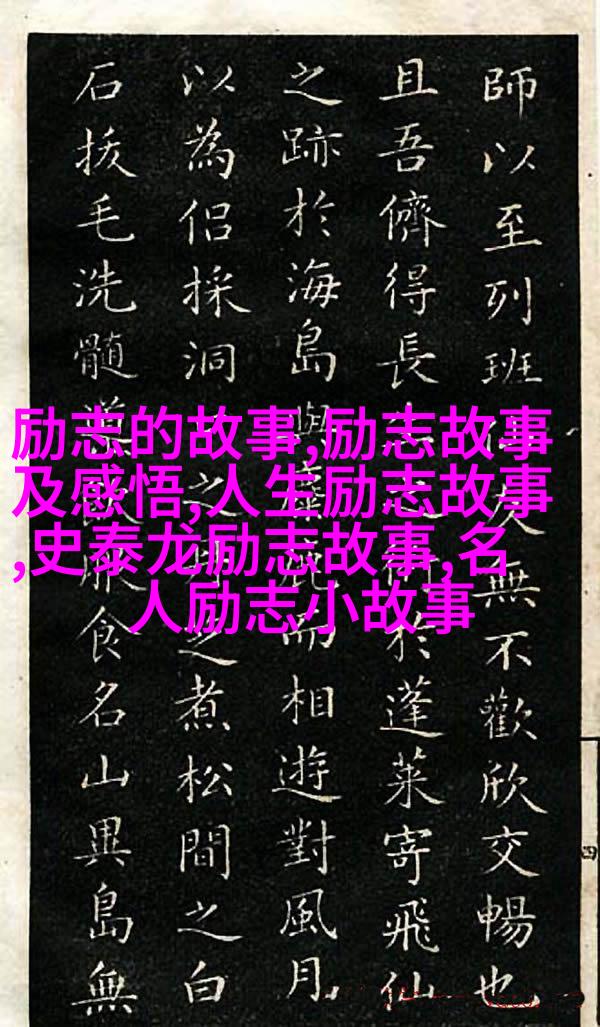 師以至列班友無不歡欣交暢也
且吾儕得長於蓬萊寄飛仙
之跡於海島與而相遊對風月
以為侶採洞之之煮松間之白
石拔毛洗髓食名山異島無
励志的故事,励志故事
及感悟,人生励志故事
,史泰龙励志故事,名
人励志小故事
四